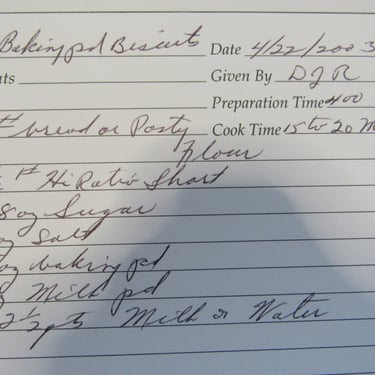 Baking pd Biscuits Date 4/22/2003
Given By DJR
Preparation Time 400
bread or Pasty Cook Time 15 to 20 M
Flour
Hi Ratio Short
8 oz Sugar
oz Salt
oz baking pd
Milk pd
2 1/2 pts Milk or Water